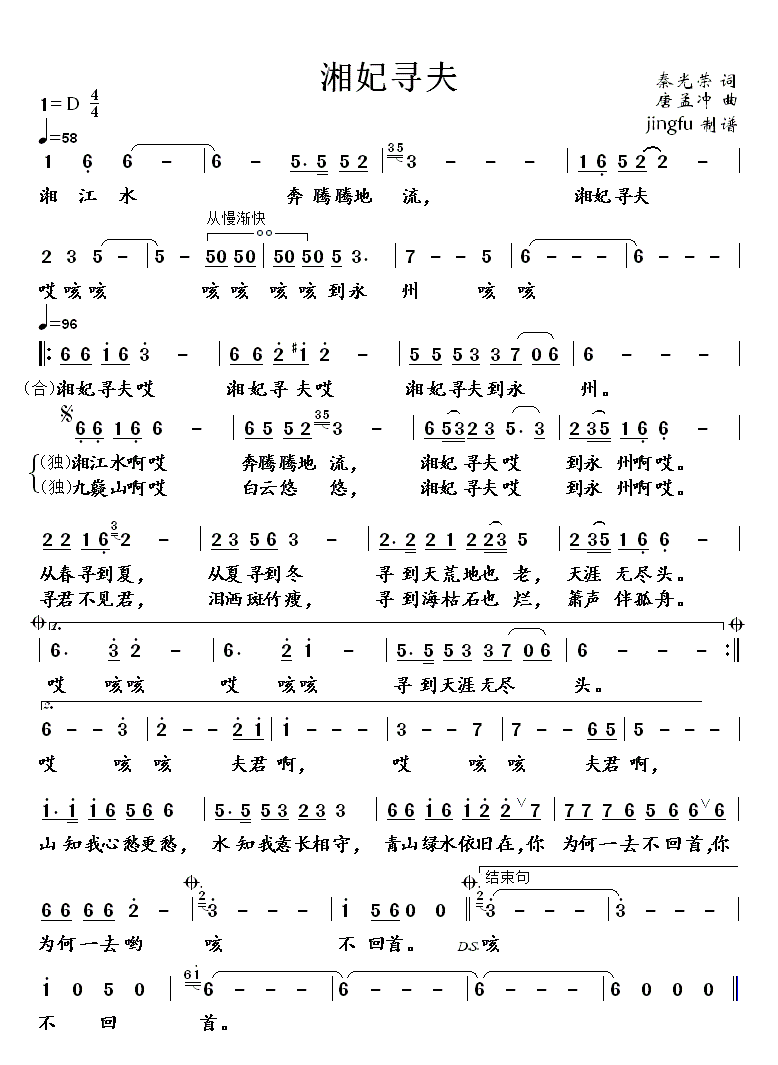 湘妃寻夫
秦光荣 词
唐孟冲 曲
jingfu 制谱
1=D 4/4
♩=58
1 6 6 - | 6 - 5. 5 5 2 | 35 3 - - - | 1 6 5 2 2 - |
湘 江 水 奔 腾 腾 地 流, 湘妃 寻夫
从慢渐快
2 3 5 - | 5 - 50 50 | 50 50 5 3. | 7 - - 5 | 6 - - - | 6 - - - |
哎 咳 咳 咳 咳 咳 咳 到永 州 咳 咳
♩=96
‖: 6 6 1 6 3 - | 6 6 2 #1 2 - | 5 5 5 3 3 7 0 6 | 6 - - - |
(合)湘妃 寻夫 哎 湘妃 寻 夫 哎 湘妃 寻夫 到永 州。
6 6 1 6 6 - | 6 5 5 2 35 3 - | 6 53 23 5. 3 | 2 35 1 6 6 - |
(独)湘江 水啊 哎 奔腾 腾地 流, 湘妃 寻夫 哎 到永 州啊 哎。
(独)九嶷 山啊 哎 白云 悠 悠, 湘妃 寻夫 哎 到永 州啊 哎。
2 2 1 6 3 2 - | 2 3 5 6 3 - | 2. 2 2 1 2 23 5 | 2 35 1 6 6 - |
从春 寻到 夏, 从夏 寻到 冬 寻 到天荒地也 老, 天涯 无尽 头。
寻君 不见 君, 泪洒 斑竹 瘦, 寻 到海枯石也 烂, 萧声 伴孤 舟。
1.
| 6. 3 2 - | 6. 2 1 - | 5. 5 5 3 3 7 0 6 | 6 - - - :‖
哎 咳 咳 哎 咳 咳 寻 到天涯 无尽 头。
2.
6 - - 3 | 2 - - 2 1 | 1 - - - | 3 - - 7 | 7 - - 6 5 | 5 - - - |
哎 咳 咳 夫君 啊, 哎 咳 咳 夫君 啊,
1. 1 1 6 5 6 6 | 5. 5 5 3 2 3 3 | 6 6 1 6 1 2 2 ∨ 7 | 7 7 7 6 5 6 6 ∨ 6 |
山 知我心愁更愁, 水 知我意长相守, 青山绿水依旧在,你 为何一去不回首,你
结束句
6 6 6 6 2 - | 2 3 - - - | 1 5 6 0 0 ‖ 2 3 - - - | 3 - - - |
为何 一去 哟 咳 不 回首。 D.S. 咳
1 0 5 0 | 61 6 - - - | 6 - - - | 6 - - - | 6 0 0 0 ‖
不 回 首。